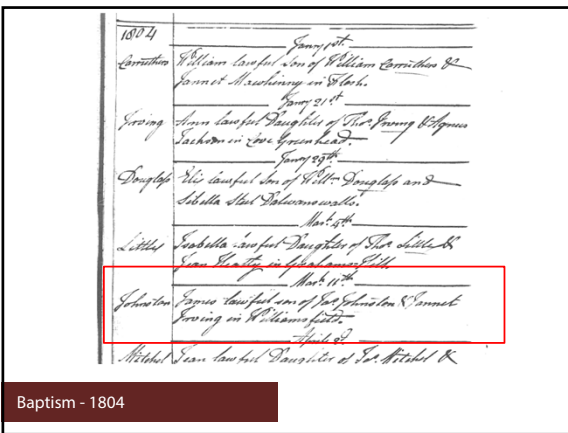 1804
Janry 1st.
Carruthers William lawful son of William Carruthers &
Jannet Mawhinny in Flosh.
Janry 21st
Irving Ann lawful Daughter of Thos. Irving & Agnes
Jackson in Cove Greenhead.
Janry 29th
Douglass lawful son of Willm. Douglass and
Sibella Steel Dalwanswalls.
Mark 4th
Little Isabella lawful Daughter of Thos. Little &
Jean Beatty in Hill.
Mark 11th
Johnston James lawful son of Jas. Johnston & Jannet
Irving in Williamsfield.
April 2d
Mitchel Jean lawful Daughter of Jas. Mitchel &
Baptism - 1804